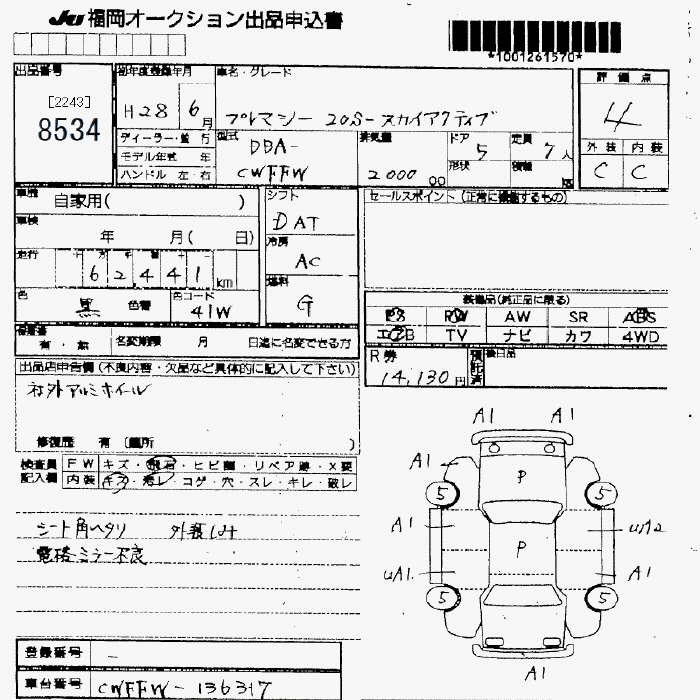 JU 福岡オークション出品申込書
*1001261570*
出品番号
[2243]
8534
初年度登録年月
H28 6月
車名・グレード
プレマシー 20S-スカイアクティブ
評価点
4
外装 内装
C C
ディーラー・並行
モデル年式 年
ハンドル 左・右
型式
DBA-
CWFFW
排気量
2000 00
ドア
5
形状
定員
7人
積載
kg
車歴
自家用( )
車検
年 月( 日)
走行
十 万 千 百 十
62441 km
色
黒
色替
色コード
41W
シフト
DAT
冷房
AC
燃料
G
セールスポイント (正常に機能するもの)
装備品(純正品に限る)
PS PW AW SR ABS
エアB TV ナビ カワ 4WD
有・無
名変期限 月 日迄に名変できる方
R券
14,130円
預託済
後日品
出品店申告欄 (不良内容・欠品など具体的に記入して下さい)
社外アルミホイール
修復歴 有 〔箇所 )
検査員記入欄
FW キズ・飛石・ヒビ・リペア跡・X要
内装 キズ・汚レ・コゲ・穴・スレ・キレ・破レ
シート角ヘタリ 外装
電格ミラー不良
A1 A1
A1
P
5 5
A1
P
UA2
UA1
A1
5 5
A1
登録番号 -
車台番号 CWFFW-136317